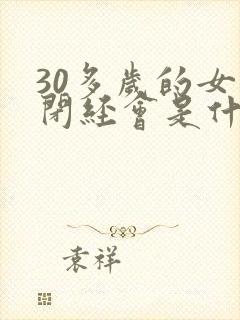 30多歲的女
閉經會是什
袁祥